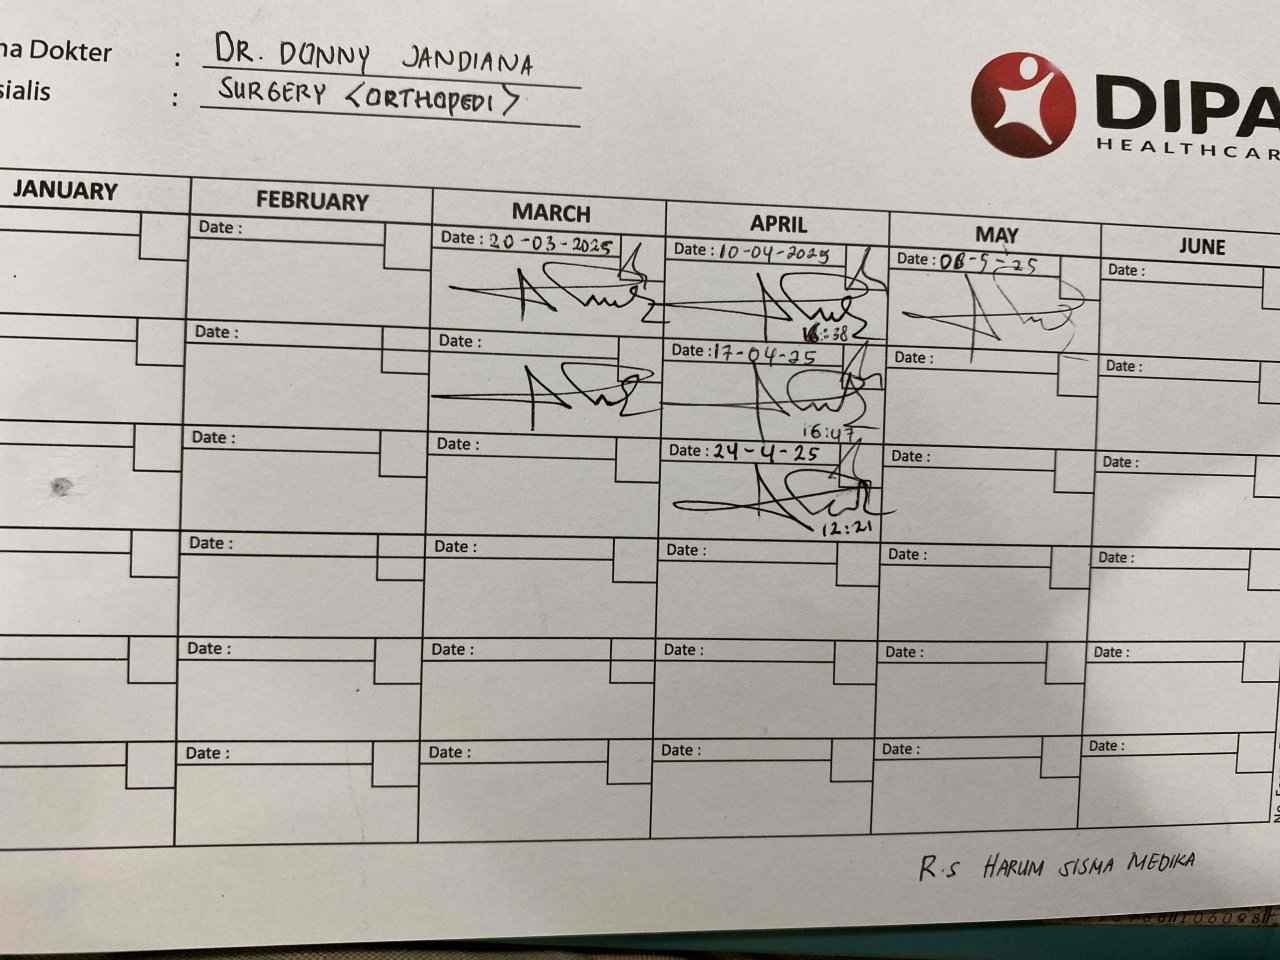 Dokter : DR. DONNY JANDIANA
: SURGERY <ORTHOPEDI>
DIPA
HEALTHCAR
JANUARY FEBRUARY MARCH APRIL MAY JUNE
Date : Date : 20-03-2025 Date : 10-04-2025 Date : Date :
16:38
Date : Date : Date : 17-04-25 Date : Date :
16:47
Date : Date : Date : 24-4-25 Date : Date :
12:21
Date : Date : Date : Date : Date :
Date : Date : Date : Date : Date :
Date : Date : Date : Date : Date :
R.S HARUM SISMA MEDIKA